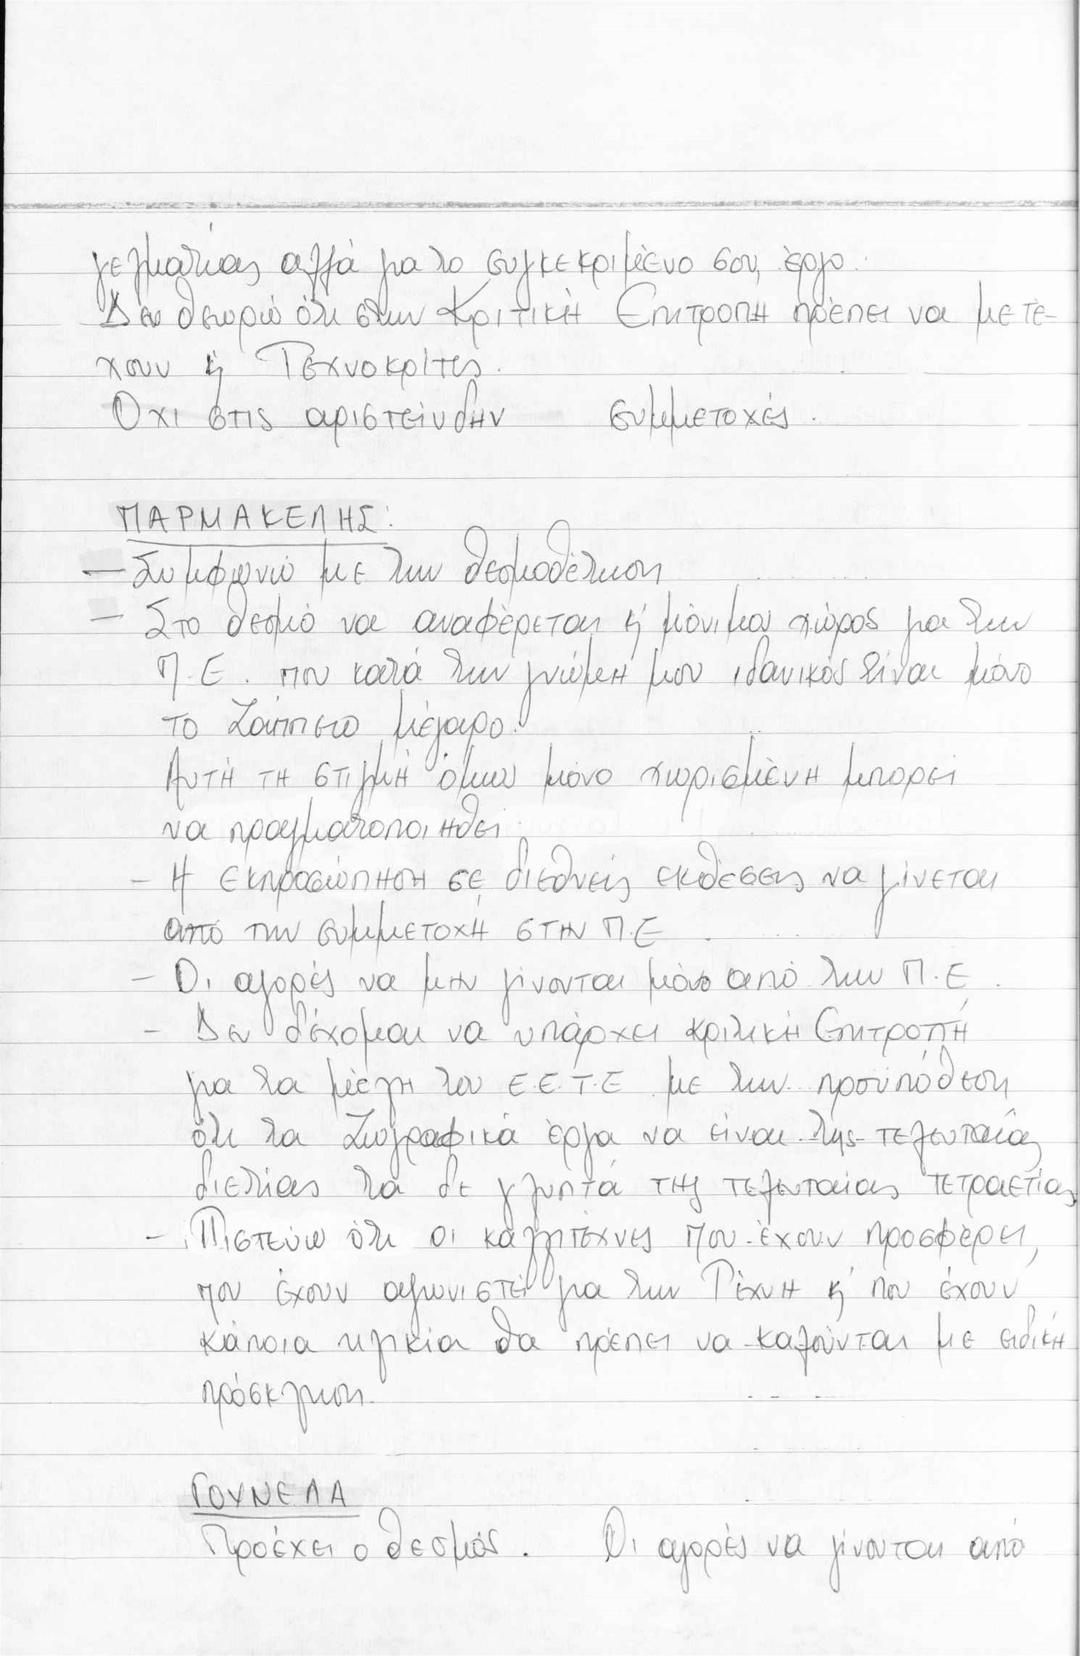 γελματίας αλλά για το συγκεκριμένο σου έργο.
Δεν θεωρώ ότι στην Κριτική Επιτροπή πρέπει να μετέ-
χουν ή Τεχνοκρίτες.
Όχι στις αριστείνδην συμμετοχές.
ΠΑΡΜΑΚΕΛΗΣ:
— Συμφωνώ με την θεσμοθέτηση
— Στο θεσμό να αναφέρεται ή μόνιμος χώρος για την
Π.Ε. που κατά την γνώμη μου ιδανικός είναι μόνο
το Ζάππειο Μέγαρο.
Αυτή τη στιγμή όμως μόνο χωρισμένη μπορεί
να πραγματοποιηθεί.
- Η εκπροσώπηση σε διεθνείς εκθέσεις να γίνεται
από την συμμετοχή στην Π.Ε
- Οι αγορές να μην γίνονται μόνο από την Π.Ε.
- Δεν δέχομαι να υπάρχει κριτική Επιτροπή
για τα μέλη του Ε.Ε.Τ.Ε με την προϋπόθεση
ότι τα Ζωγραφικά έργα να είναι της τελευταίας
διετίας τα δε γλυπτά της τελευταίας τετραετίας
- Πιστεύω ότι οι καλλιτέχνες που έχουν προσφέρει,
που έχουν αγωνιστεί για την Τέχνη ή που έχουν
κάποια ηλικία θα πρέπει να καλούνται με ειδική
πρόσκληση.
ΓΟΥΝΕΛΑ
Προέχει ο θεσμός. Οι αγορές να γίνονται από